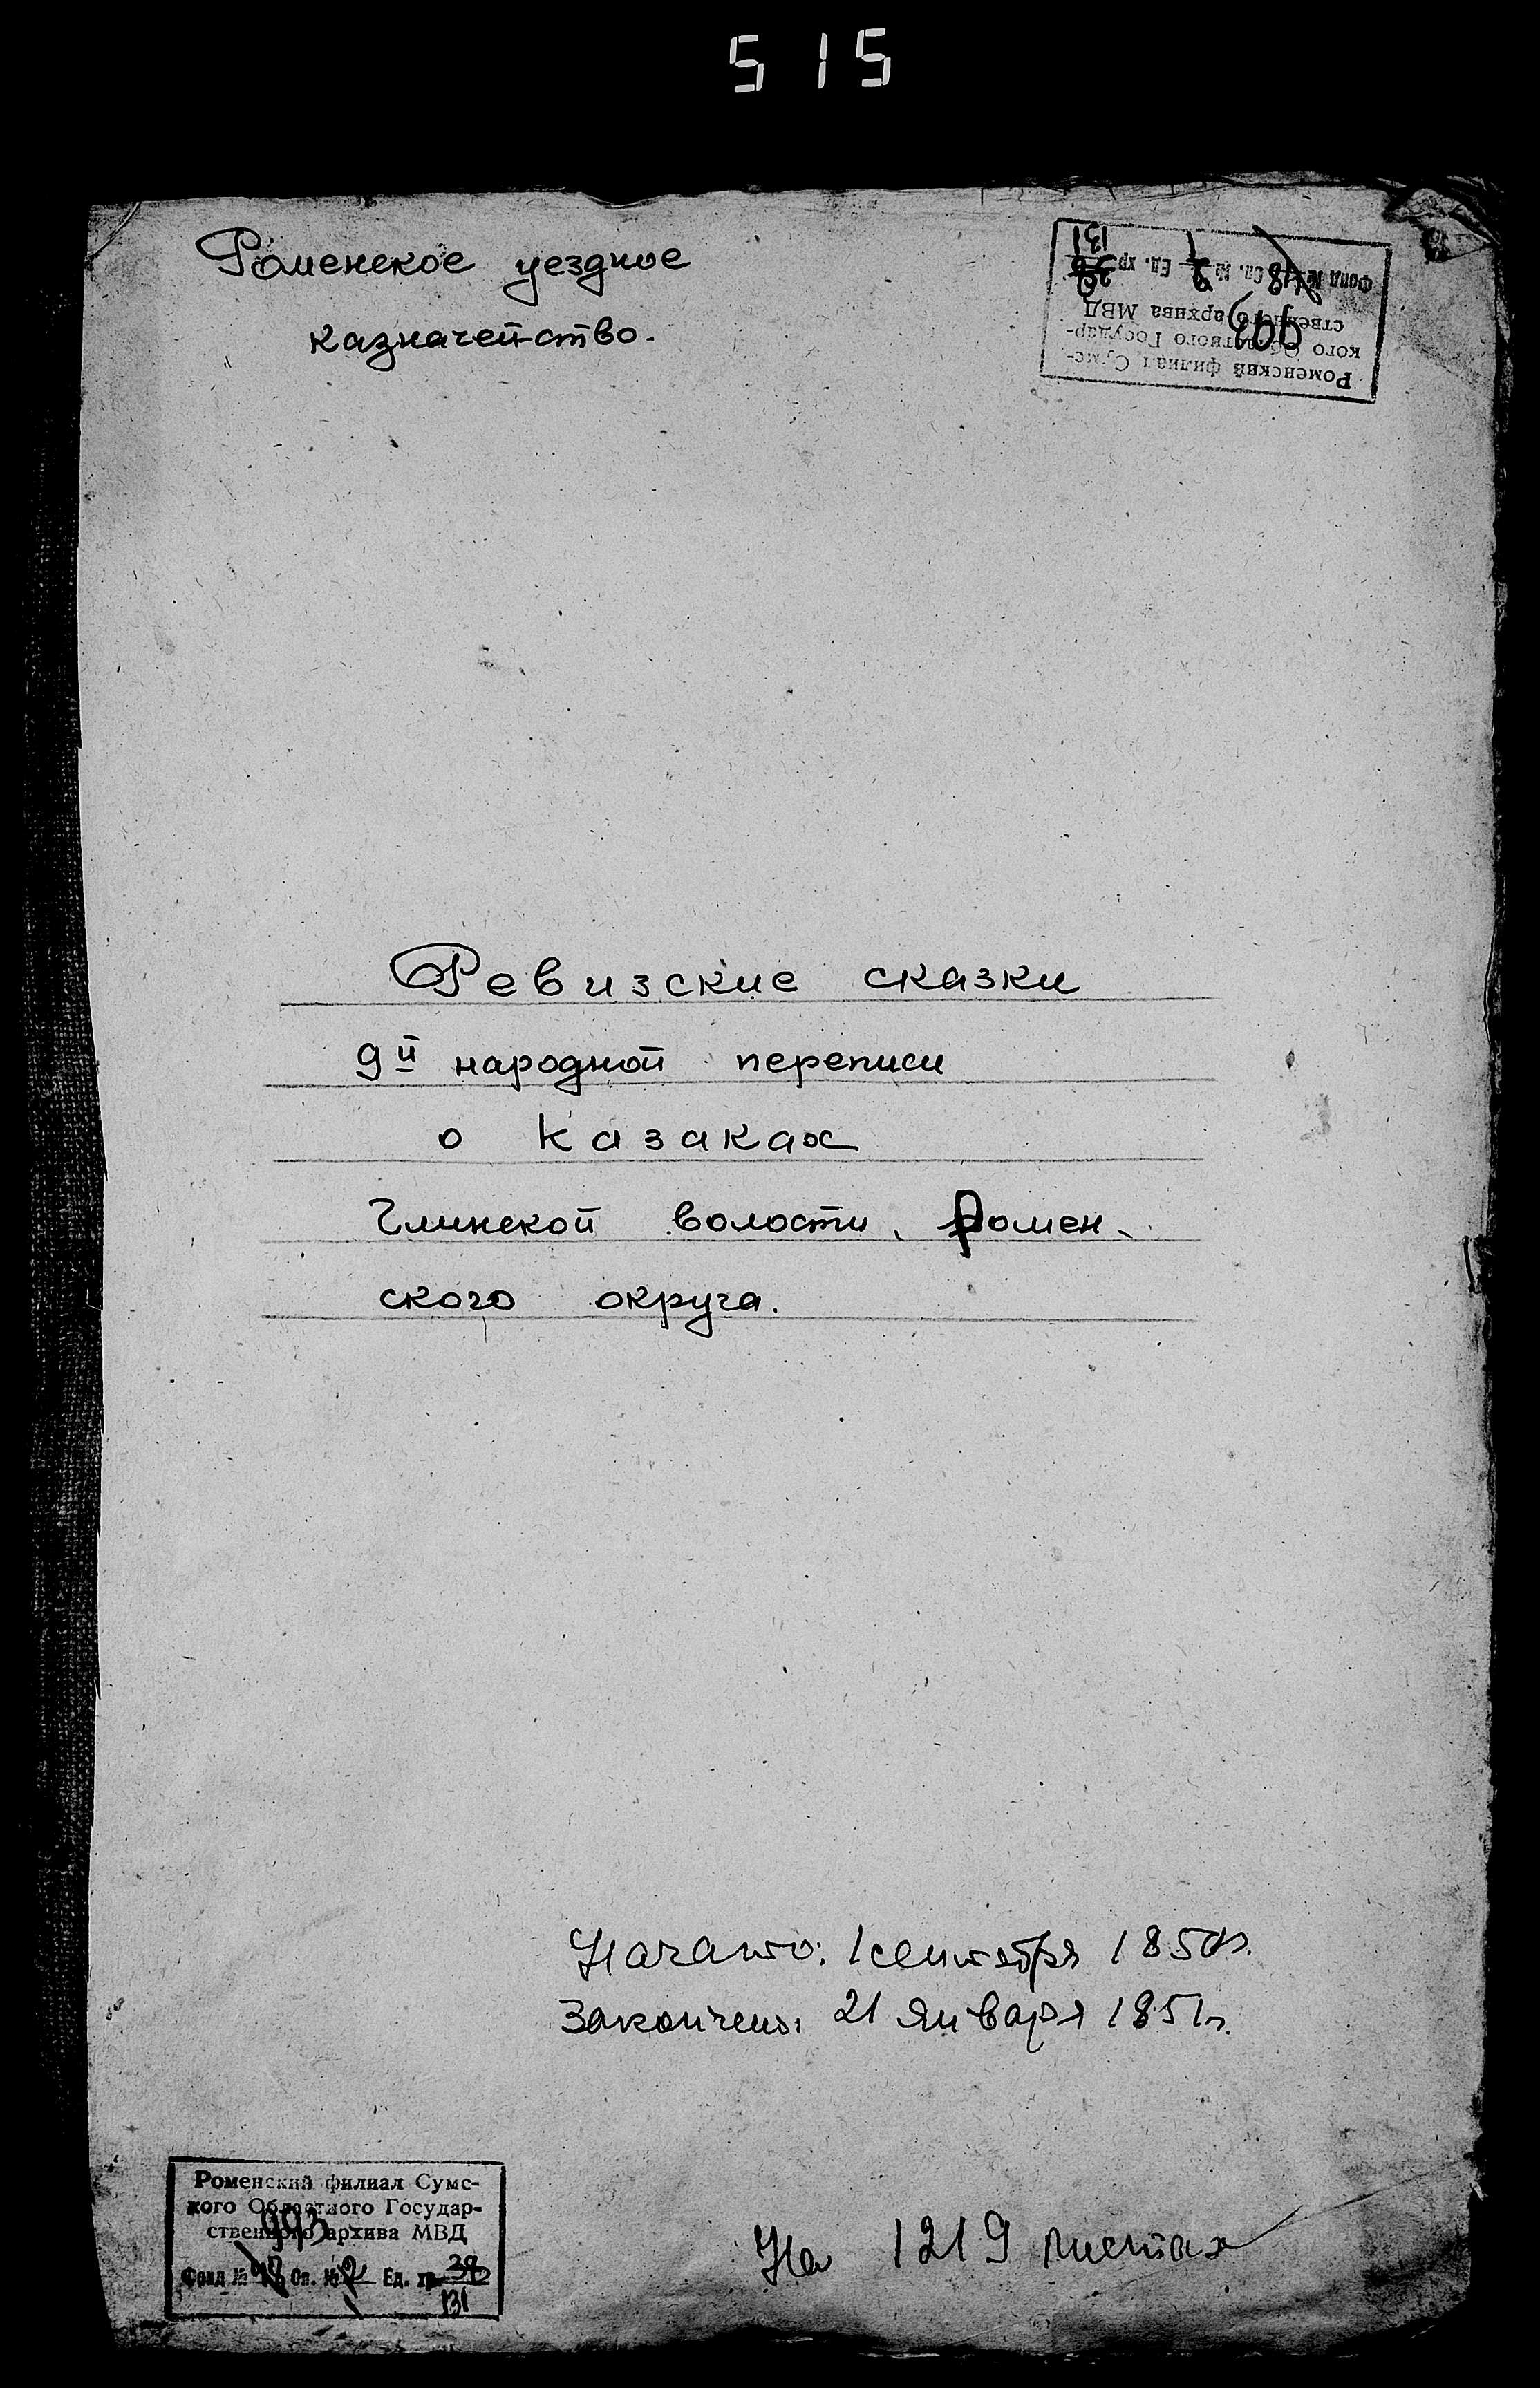 515
Роменское уездное
казначейство.
Роменский филиал Сумс-
кого Областного Государ-
ственного архива МВД
993
Фонд № Оп. № 2 Ед. хр. 38
131
Ревизские сказки
9й народной переписи
о казаках
Глинской волости, Ромен-
ского округа.
Начато: 1 сентября 1850г.
Закончено: 21 января 1851г.
Роменский филиал Сумс-
кого Областного Государ-
ственного архива МВД
993
Фонд № Оп. № 2 Ед. хр. 38
131
На 1219 листах